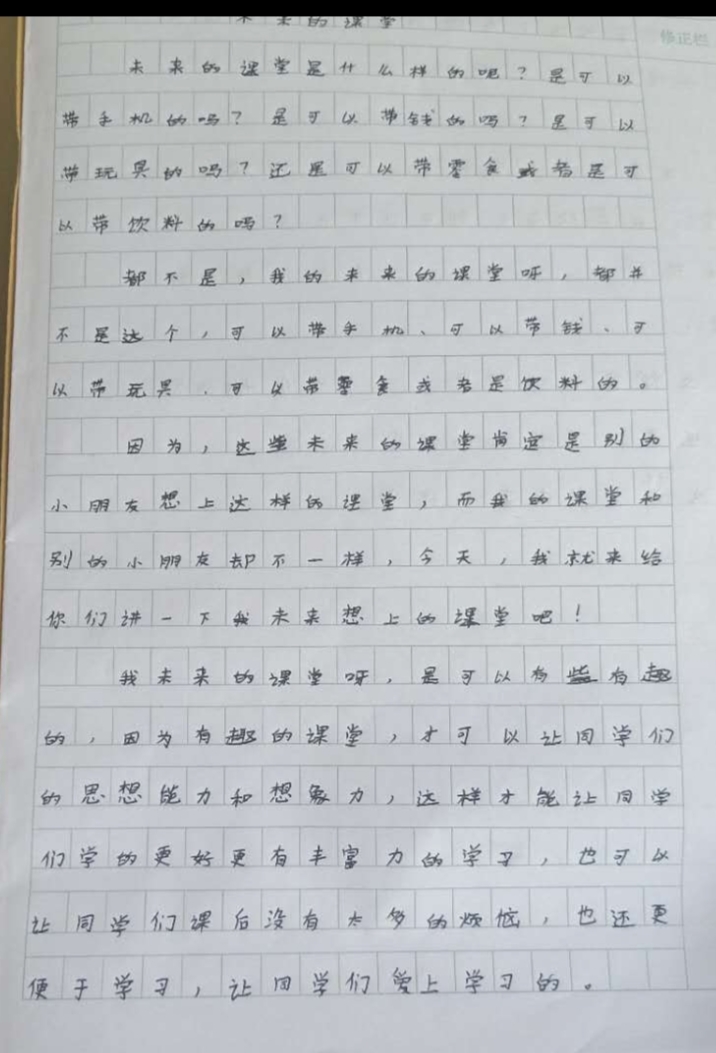 未来的课堂
修正栏
未来的课堂是什么样的呢？是可以
带手机的吗？是可以带钱的吗？是可以
带玩具的吗？还是可以带零食或者是可
以带饮料的吗？
都不是，我的未来的课堂呀，都并
不是这个，可以带手机、可以带钱、可
以带玩具、可以带零食或者是饮料的。
因为，这些未来的课堂肯定是别的
小朋友想上这样的课堂，而我的课堂和
别的小朋友却不一样，今天，我就来给
你们讲一下我未来想上的课堂吧！
我未来的课堂呀，是可以有些有趣
的，因为有趣的课堂，才可以让同学们
的思想能力和想象力，这样才能让同学
们学的更好更有丰富力的学习，也可以
让同学们课后没有太多的烦恼，也还更
便于学习，让同学们爱上学习的。